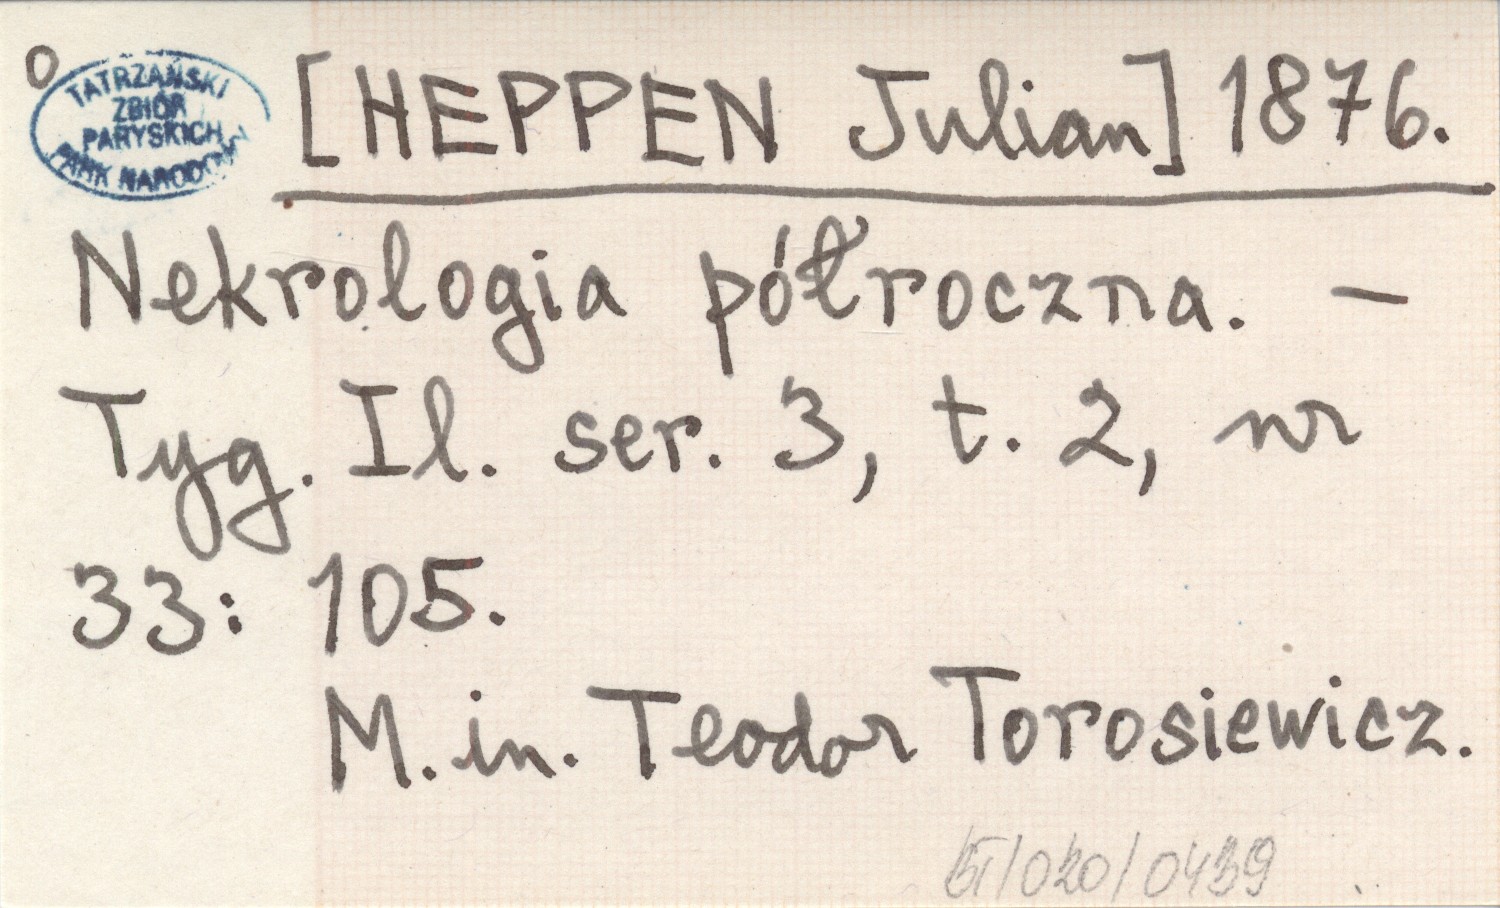 o
TATRZAŃSKI
ZBIÓR
PARYSKICH
PARK NARODOWY
[HEPPEN Julian] 1876.
Nekrologia półroczna. –
Tyg. Il. ser. 3, t. 2, nr
33: 105.
M. in. Teodor Torosiewicz.
/020/0439